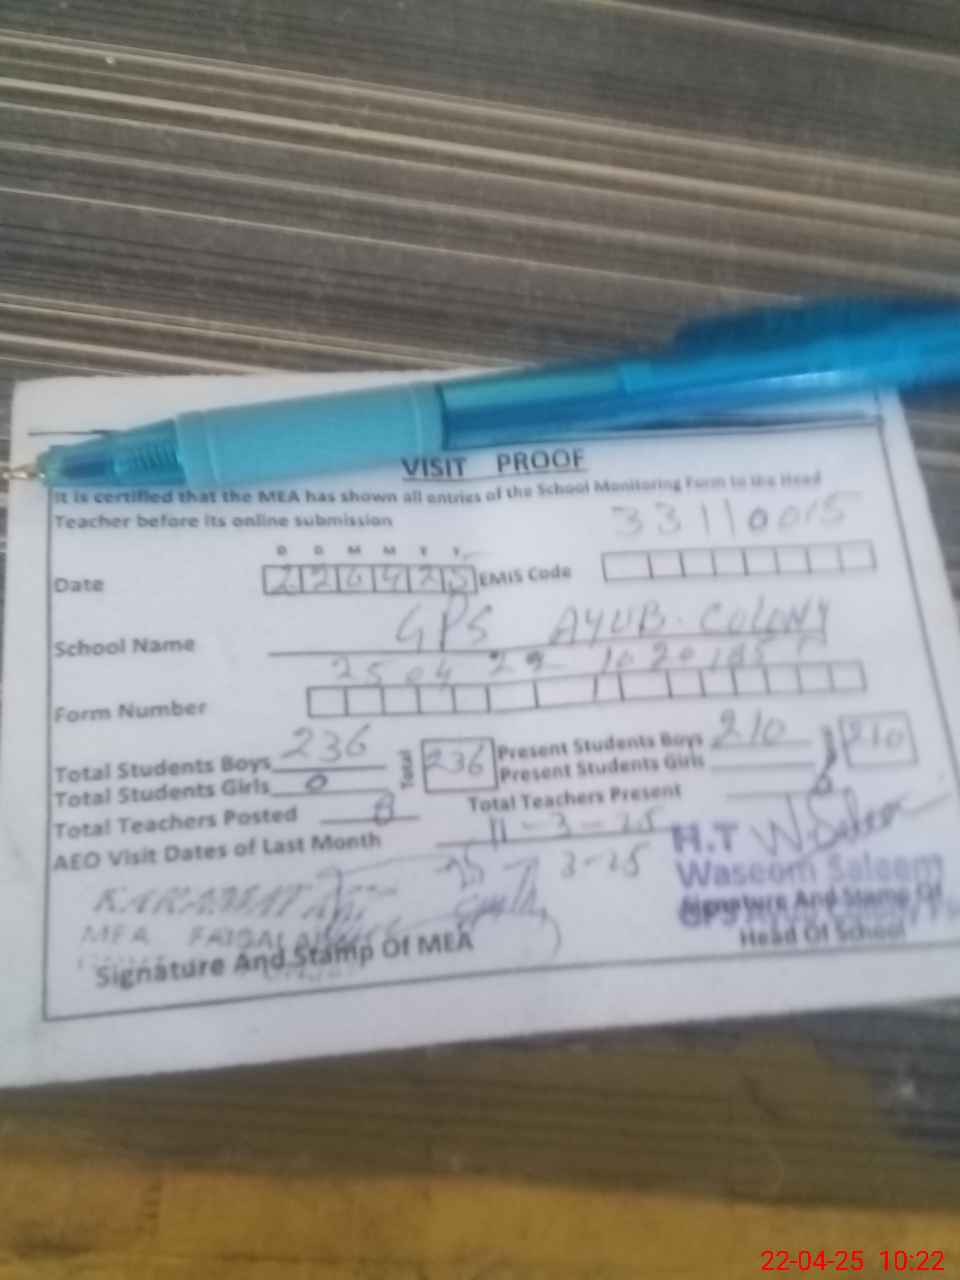 VISIT PROOF
It is certified that the MEA has shown all entries of the School Monitoring Form to the Head
Teacher before its online submission
33110015
D D M M Y Y
Date 220425 EMIS Code
School Name GPS AYUB COLONY
2504 22 1020
Form Number
Total Students Boys 236 Total 236 Present Students Boys 210 210
Total Students Girls 0 Present Students Girls
Total Teachers Posted 8 Total Teachers Present 8
AEO Visit Dates of Last Month 11-3-25
3-25
H.T
Waseem Saleem
KARAMAT
MEA FAISALABAD
Signature And Stamp Of MEA
Signature And Stamp Of
Head Of School
22-04-25 10:22